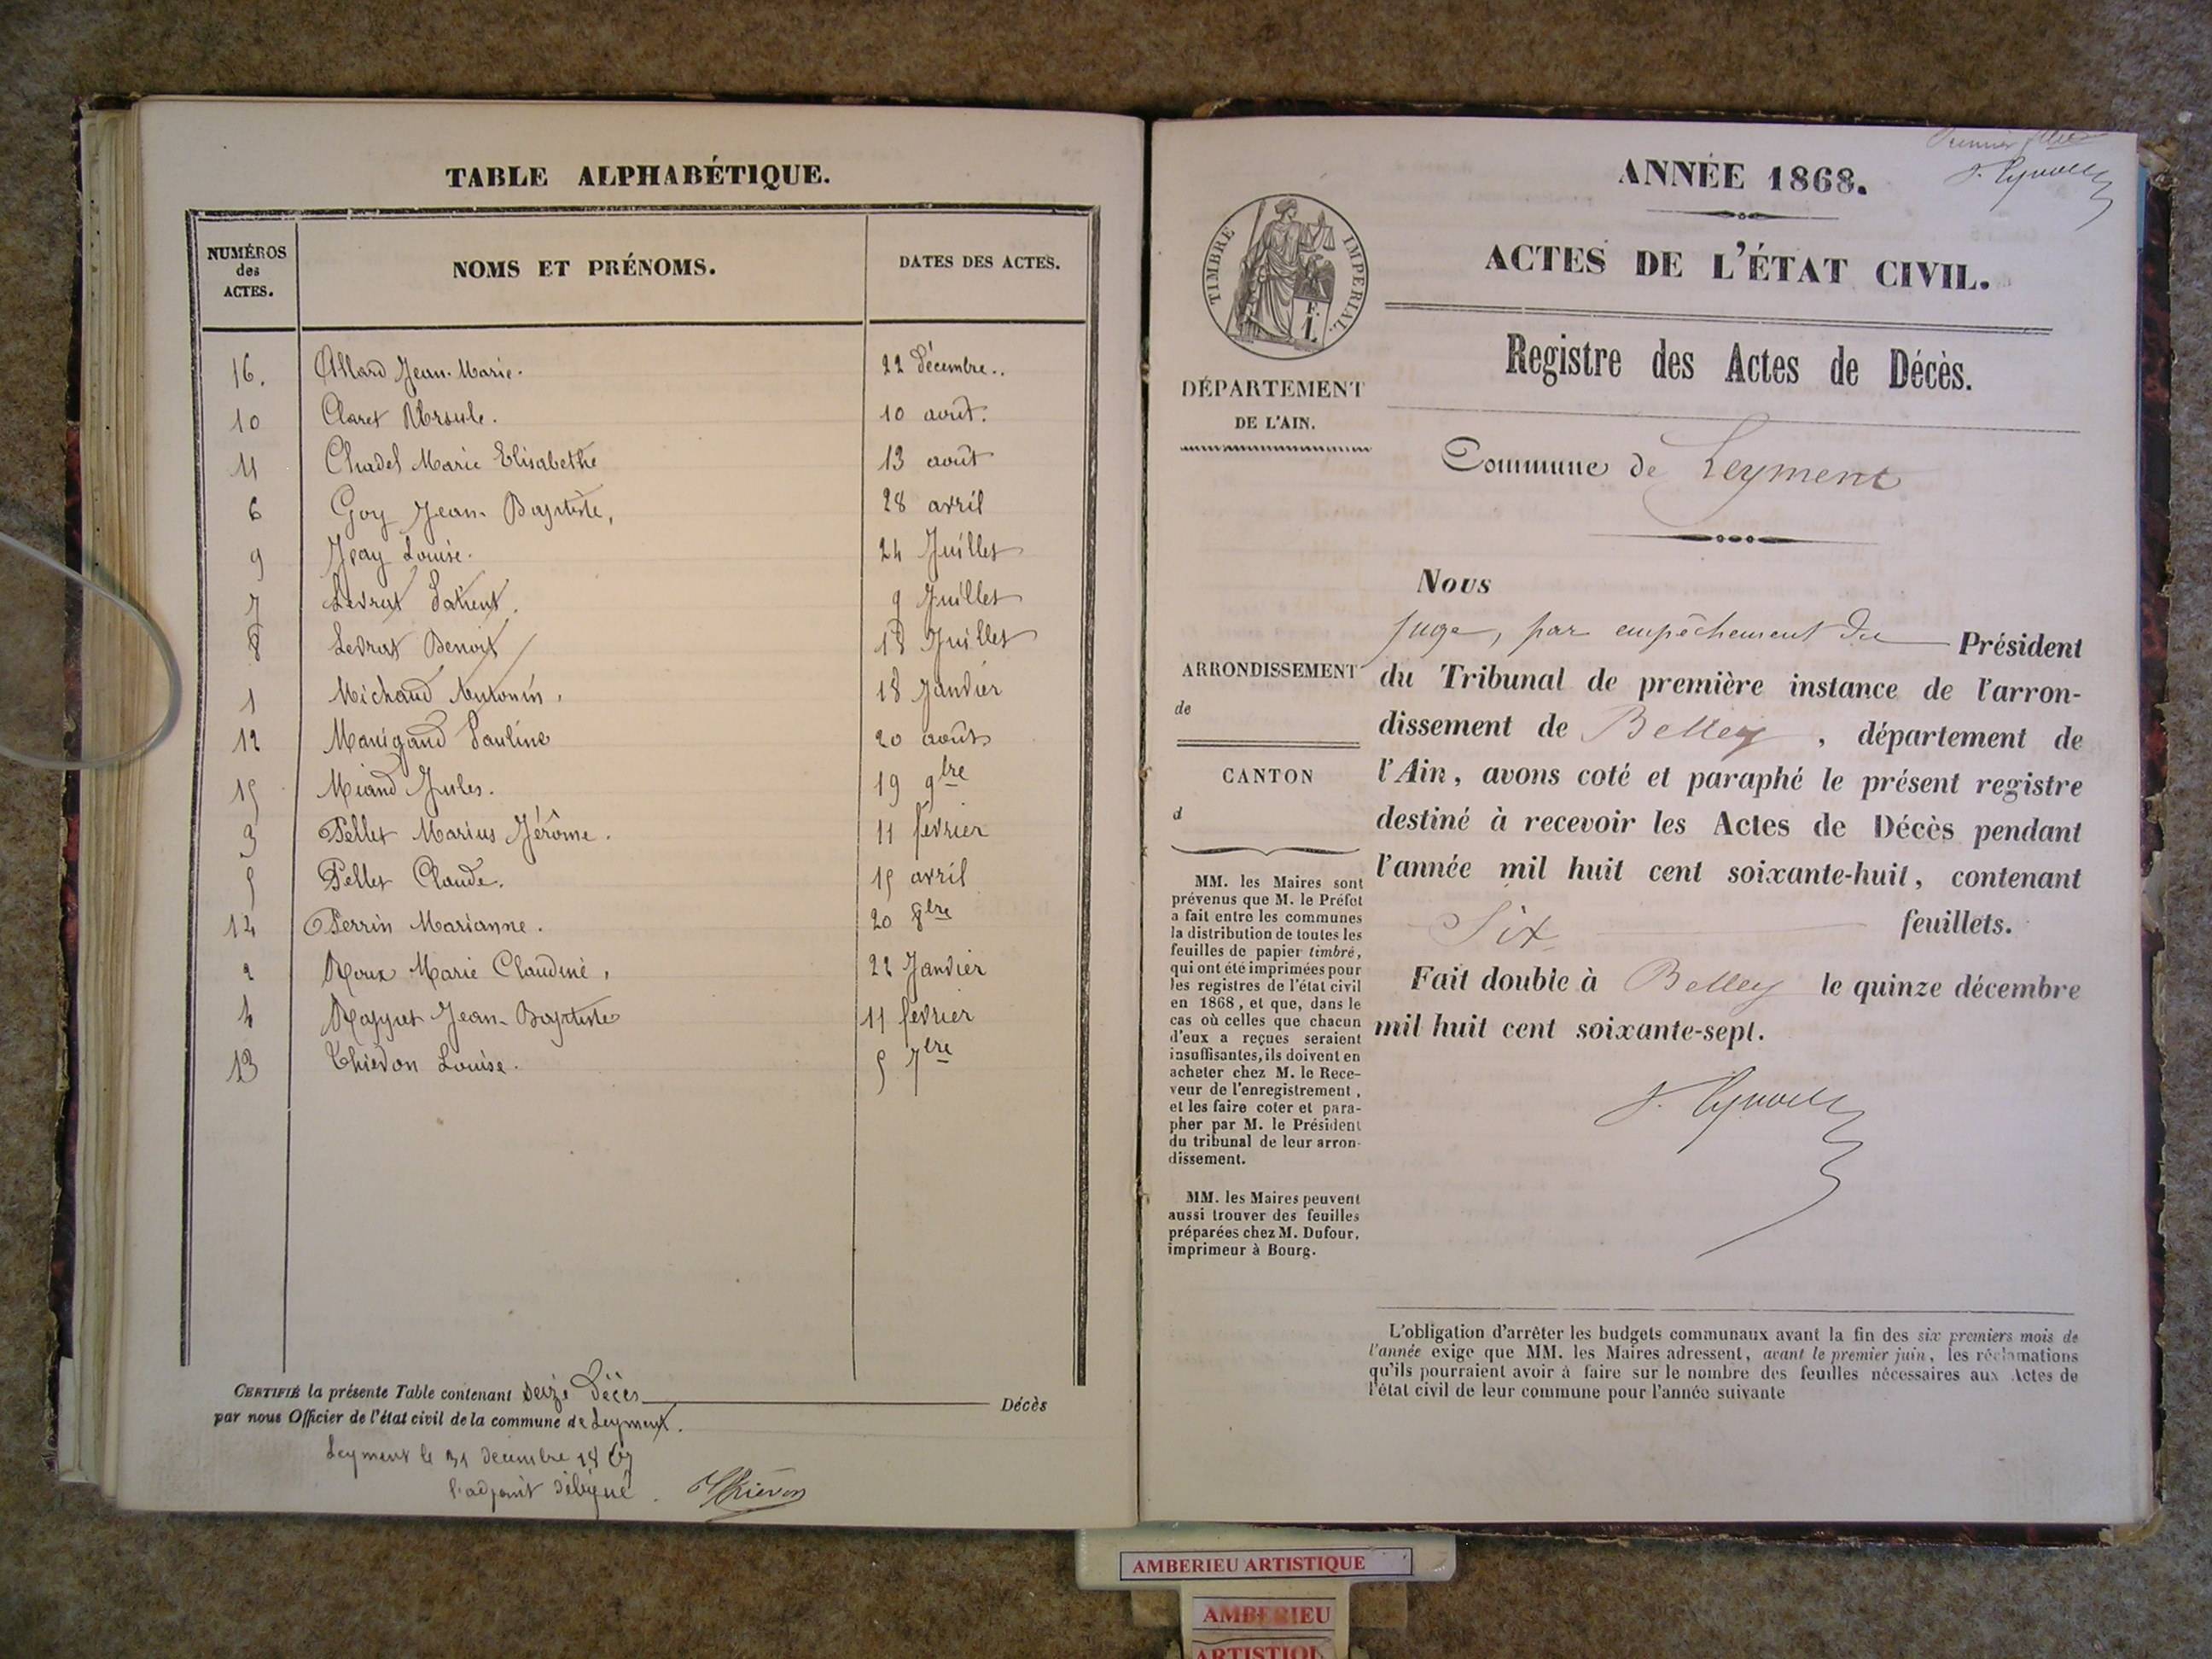 TABLE ALPHABÉTIQUE.
NUMÉROS des ACTES. NOMS ET PRÉNOMS. DATES DES ACTES.
16. Allard Jean-Marie. 22 Décembre..
10 Claret Ursule. 10 août.
11 Chadel Marie Elisabethe 13 août
6 Goy Jean-Baptiste, 28 avril
9 Jpay Louise. 24 Juillet
7 Levrat 9 Juillet
8 Levrat Benoit 18 Juillet
1 Michaud Antonin, 18 Janvier
12 Manigand Pauline 20 août
15 Miand Jules. 19 9bre
3 Pellet Marius Jérôme. 11 février
5 Pellet Claude. 15 avril
14 Perrin Marianne. 20 8bre
2 Roux Marie Claudine, 22 Janvier
4 Jean-Baptiste 11 février
13 Thiévon Louise. 5 7bre
CERTIFIÉ la présente Table contenant seize Décès Décès
par nous Officier de l'état civil de la commune de Leyment.
Leyment le 31 décembre 1867
l'adjoint délégué. Thiévon
Premier
ANNÉE 1868.
ACTES DE L'ÉTAT CIVIL.
TIMBRE IMPÉRIAL.
Registre des Actes de Décès.
DÉPARTEMENT
DE L'AIN.
Commune de Leyment
Nous
juge, par empêchement du Président
du Tribunal de première instance de l'arron-
dissement de Belley, département de
l'Ain, avons coté et paraphé le présent registre
destiné à recevoir les Actes de Décès pendant
l'année mil huit cent soixante-huit, contenant
Six feuillets.
Fait double à Belley le quinze décembre
mil huit cent soixante-sept.
ARRONDISSEMENT
de
CANTON
d
MM. les Maires sont
prévenus que M. le Préfet
a fait entre les communes
la distribution de toutes les
feuilles de papier timbré,
qui ont été imprimées pour
les registres de l'état civil
en 1868, et que, dans le
cas où celles que chacun
d'eux a reçues seraient
insuffisantes, ils doivent en
acheter chez M. le Rece-
veur de l'enregistrement,
et les faire coter et para-
pher par M. le Président
du tribunal de leur arron-
dissement.
MM. les Maires peuvent
aussi trouver des feuilles
préparées chez M. Dufour,
imprimeur à Bourg.
L'obligation d'arrêter les budgets communaux avant la fin des six premiers mois de
l'année exige que MM. les Maires adressent, avant le premier juin, les réclamations
qu'ils pourraient avoir à faire sur le nombre des feuilles nécessaires aux Actes de
l'état civil de leur commune pour l'année suivante
AMBERIEU ARTISTIQUE
AMBERIEU